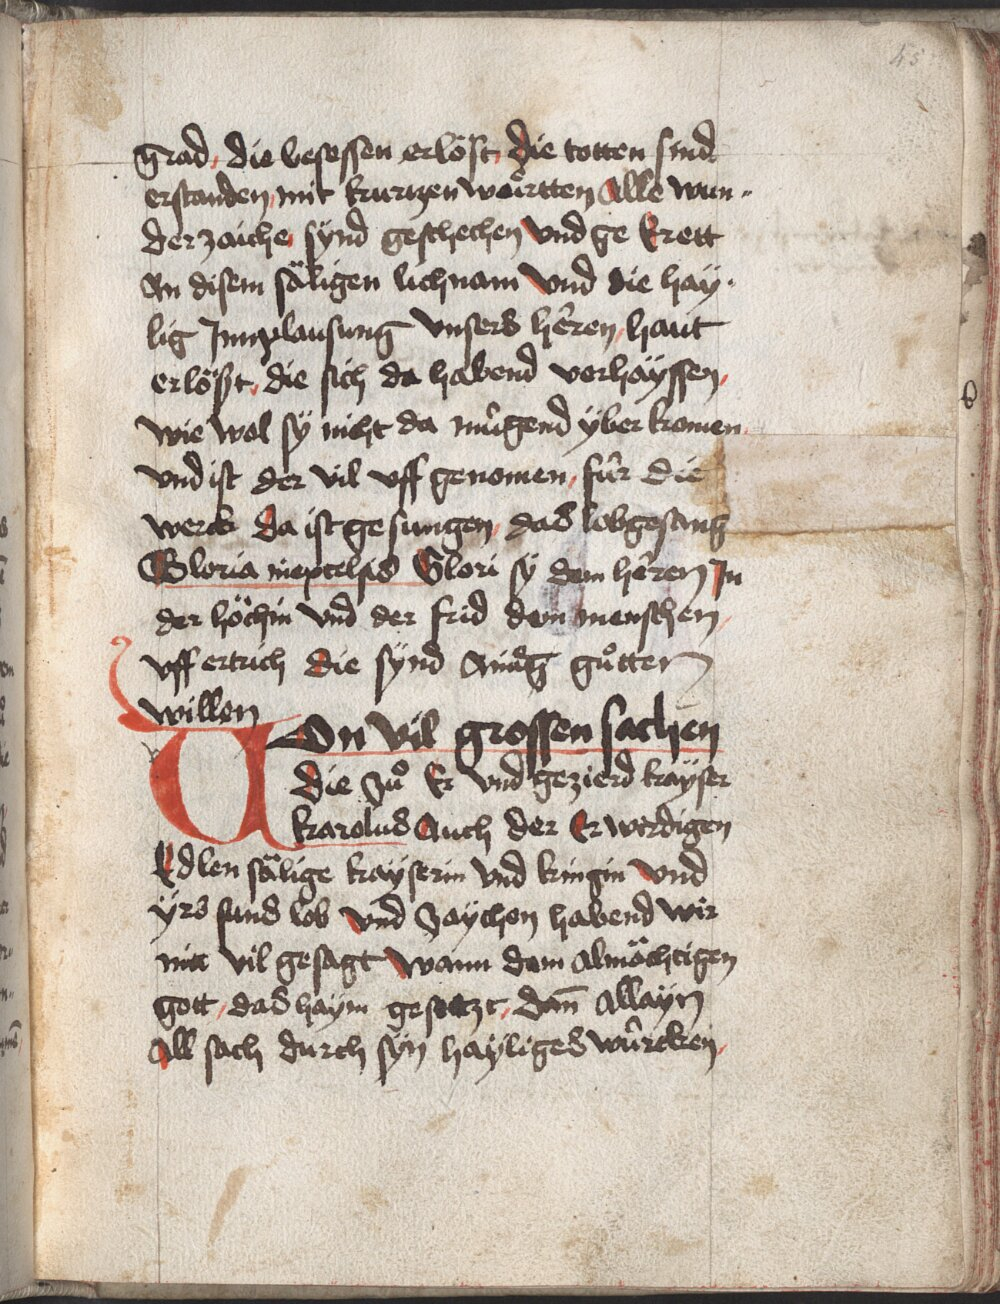 45
grad, die besessen erlöst, die totten sind
erstanden, mit kurtzen wörtten Alle wun„
derzaiche, synd geschechen vnd ge Erett
An disem säligen lichnam vnd die hay„
lig Jnnplausung vnsers hêren, haut
erlößt, die sich da habend verhäyssen,
wie wol sÿ nicht da mûgend ÿber komen,
vnd ist der vil vff genomen, fûr die
werck da ist gesungen, das lobgesang
Gloria Glori sÿ dem hêren Jn
der höchin vnd der frid dem menschen,
vff ertrich die synd gůtten
willen
Von vil grossen sachen
die zů Er vnd gezierd kaÿser
karolus Auch der Erwirdigen
Edlen sälige kaÿserin vnd kingin vnd
ÿrs suns lob vnd zaÿchen habend wir
nit vil gesagt wann dem almöchtigen
gott, das haÿm gesetzt, dem Allayn
All sach durch syn haÿliges wûrcken,